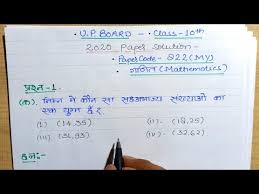 U.P. BOARD - Class-10th
2020 Paper Solution -
Paper Code - 822 (MY)
गणित (Mathematics)
प्रश्न-1.
(क). निम्न में कौन सा सहअभाज्य संख्याओं का
एक युग्म है?
i). (14,35) ii). (18,25)
iii). (31,93) iv). (32,62)
हल:-